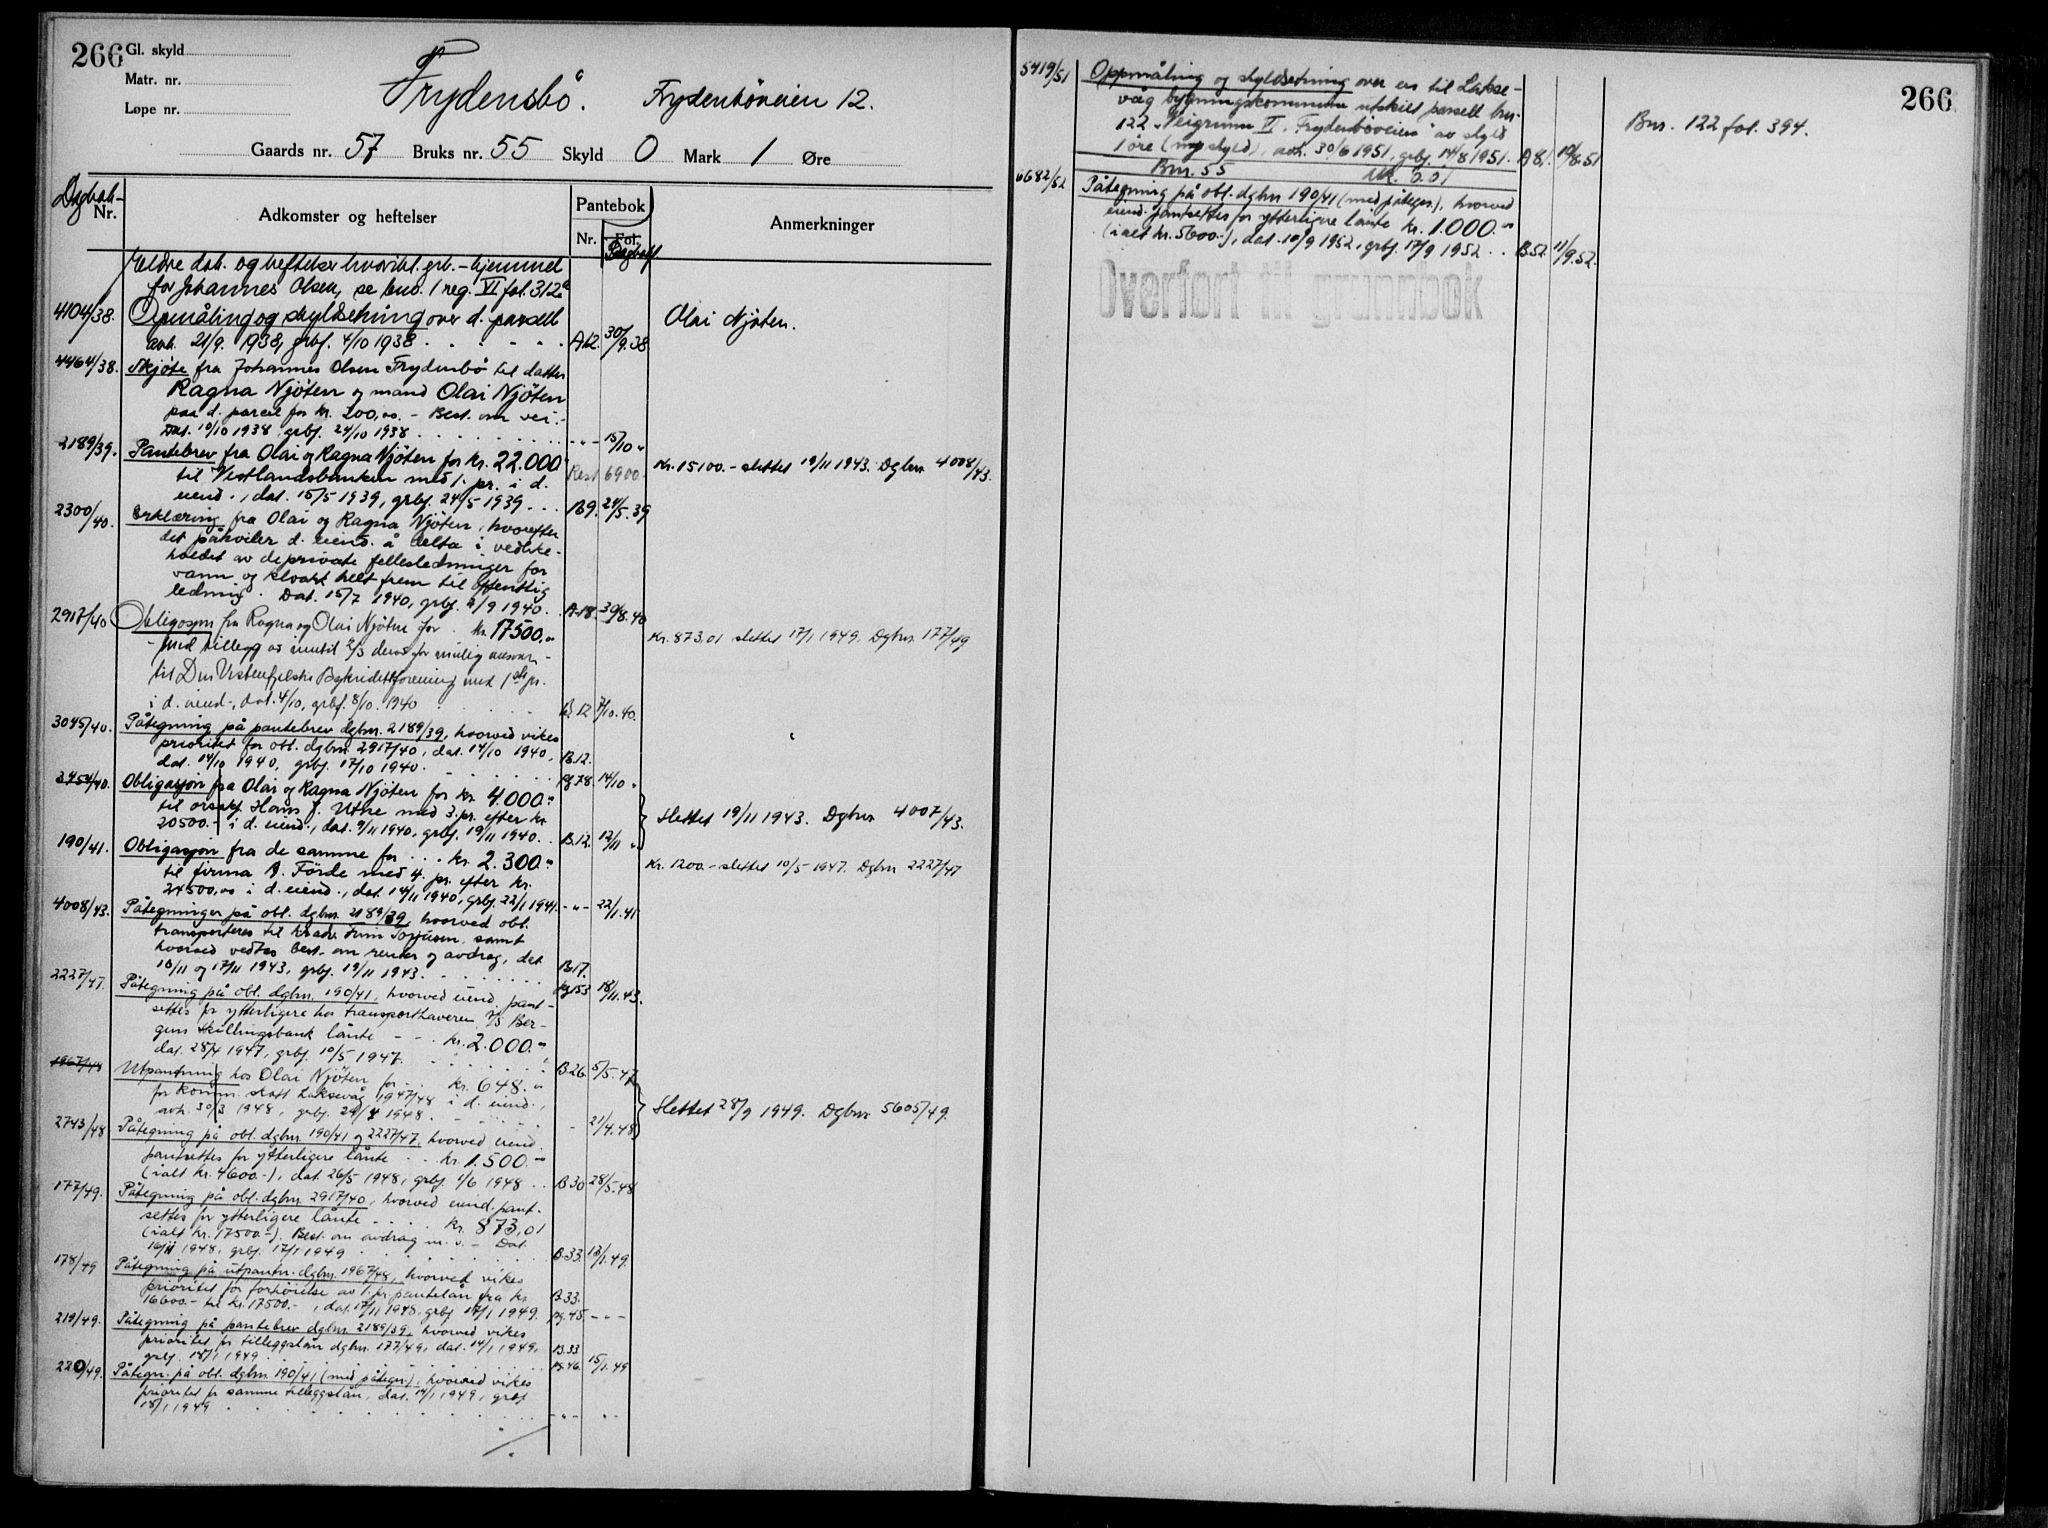 266
Gl. skyld
Matr. nr.
Løpe nr.
Frydensbö. Frydenböveien 12.
Gaards nr. 57 Bruks nr. 55 Skyld 0 Mark 1 Øre
Dagbok-
Nr.
Adkomster og heftelser
Pantebok
Nr. Fol.
Dagbokf.
Anmerkninger
Eldre dok. og heftelser hvoribl. grb.-hjemmel
for Johannes Olsen, se bno. 1 reg. VI fol. 312a
4104/38. Opmåling og skyldsetning over d. parsell Olai Njöten.
avh. 21/9. 1938, grbf. 4/10 1938 A62. 30/9.38
4464/38. Skjöte fra Johannes Olsen Frydenbö til datter
Ragna Njöten og mand Olai Njöten
paa d. parcel for kr. 200,00. - Best. om vei.-
Dat. 10/10 1938 grbf. 24/10 1938 -"- 15/10 "
2189/39. Pantebrev fra Olai og Ragna Njöten for kr. 22.000 Rest 6900.- Kr. 15100.- slettet 19/11 1943. Dgbnr 4008/43.
til Vestlandsbanken med 1. pr. i d.
eiend., dat. 15/5 1939, grbf. 24/5 1939 B9. 24/5.39
2300/40. Erklæring fra Olai og Ragna Njöten, hvorefter
det påhviler d. eiend. å delta i vedlike-
holdet av de private fellesledninger for
vann og kloakk helt frem til offentlig
ledning. Dat. 15/7 1940, grbf. 2/9 1940. A.18. 30/8.40
2917/40 Obligasjon fra Ragna og Olai Njöten for kr. 17500.- Kr. 873,01 slettet 17/1 1949. Dgbnr. 177/49
til Den Vestenfjelske Bykreditforening med 1ste pr.
i d. eiend., dat. 4/10, grbf. 8/10. 1940 B12 7/10.40.
3045/40. Påtegning på pantebrev dgbnr. 2189/39, hvorved vikes
prioritet for obl. dgbnr. 2917/40, dat. 14/10 1940,
dat. 14/10 1940, grbf. 17/10 1940. B.12.
pg 78. 14/10 "
3454/40. Obligasjon fra Olai og Ragna Njöten for kr. 4.000.-
til Hans J. Utne med 3. pr. efter kr. Slettet 19/11 1943. Dgbnr 4007/43.
20500.- i d. eiend., dat. 9/11 1940, grbf. 19/11 1940. B.12. 12/11 "
190/41. Obligasjon fra de samme for kr. 2.300.- Kr. 1200.- slettet 10/5-1947. Dgbnr 2227/47
til firma A. Förde med 4. pr. efter kr.
24500,00 i d. eiend., dat. 14/11 1940, grbf. 22/1 1941. -"- 22/1.41
4008/43. Påtegninger på obl. dgbnr. 2189/39, hvorved obl.
transporteres til samt
hvorved vedtas best. om renter og avdrag, dat.
10/11 og 17/11 1943, grbf. 19/11 1943. B17.
pg 153 18/11.43.
2227/47. Påtegning på obl. dgbnr. 190/41, hvorved eiend. pant-
settes for ytterligere hos transporthaveren A/S Ber-
gens Skillingsbank lånte kr. 2.000.-
dat. 28/4 1947, grbf. 10/5 1947. B.26. 5/5.47
1967/48 Utpantning hos Olai Njöten for kr. 648.-
for komm. skatt Laksevåg 1947/48 i d. eiend., Slettet 28/9 1949. Dgbnr 5605/49.
avh. 30/3 1948, grbf. 29/4 1948. - 21/4.48
2743/48 Påtegning på obl. dgbnr. 190/41 og 2227/47, hvorved eiend.
pantsettes for ytterligere lånte kr. 1.500.-
(ialt kr. 4600.-), dat. 26/5 1948, grbf. 1/6 1948 B30 28/5.48
177/49. Påtegning på obl. dgbnr. 2917/40, hvorved eiend. pant-
settes for ytterligere lånte kr. 873,01
(ialt kr. 17500.-). Best. om avdrag m.v. - Dat.
16/11 1948, grbf. 17/1 1949 B.33. 13/1.49.
178/49 Påtegning på utpantn. dgbnr. 1967/48, hvorved vikes
prioritet for forhöielse av 1. pr. pantelån fra kr.
16600.- til kr. 17500.-, dat. 17/11 1948, grbf 17/1 1949. B.33.
pg. 45. -"-
219/49. Påtegning på pantebrev dgbnr. 2189/39, hvorved vikes
prioritet for tilleggslån dgbnr. 177/49, dat. 14/1 1949,
grbf. 18/1 1949. B.33
pg. 46. 15/1.49
220/49. Påtegn. på obl. dgbnr. 190/41 (med påtegn.), hvorved vikes
prioritet for samme tilleggslån, dat. 14/1 1949, grbf
18/1 1949 -"- "-
5419/51 Oppmåling og skyldsetning over en til Lakse-
våg bygningskommune utskilt parsell bnr.
122 "Veigrunn VI, Frydenböveien" av skyld
1 öre (ny skyld), avh. 30/6 1951, grbf. 14/8 1951. A81. 10/8.51
Bnr. 122 fol. 394.
Bnr. 55 Mk. 0.01
6682/52 Påtegning på obl. dgbnr 190/41 (med påtegn.), hvorved
eiend. pantsettes for ytterligere lånte kr. 1.000.-
(ialt kr. 5600.-), dat. 10/9 1952, grbf. 17/9 1952 B.52. 11/9.52.
Overført til grunnbok
266